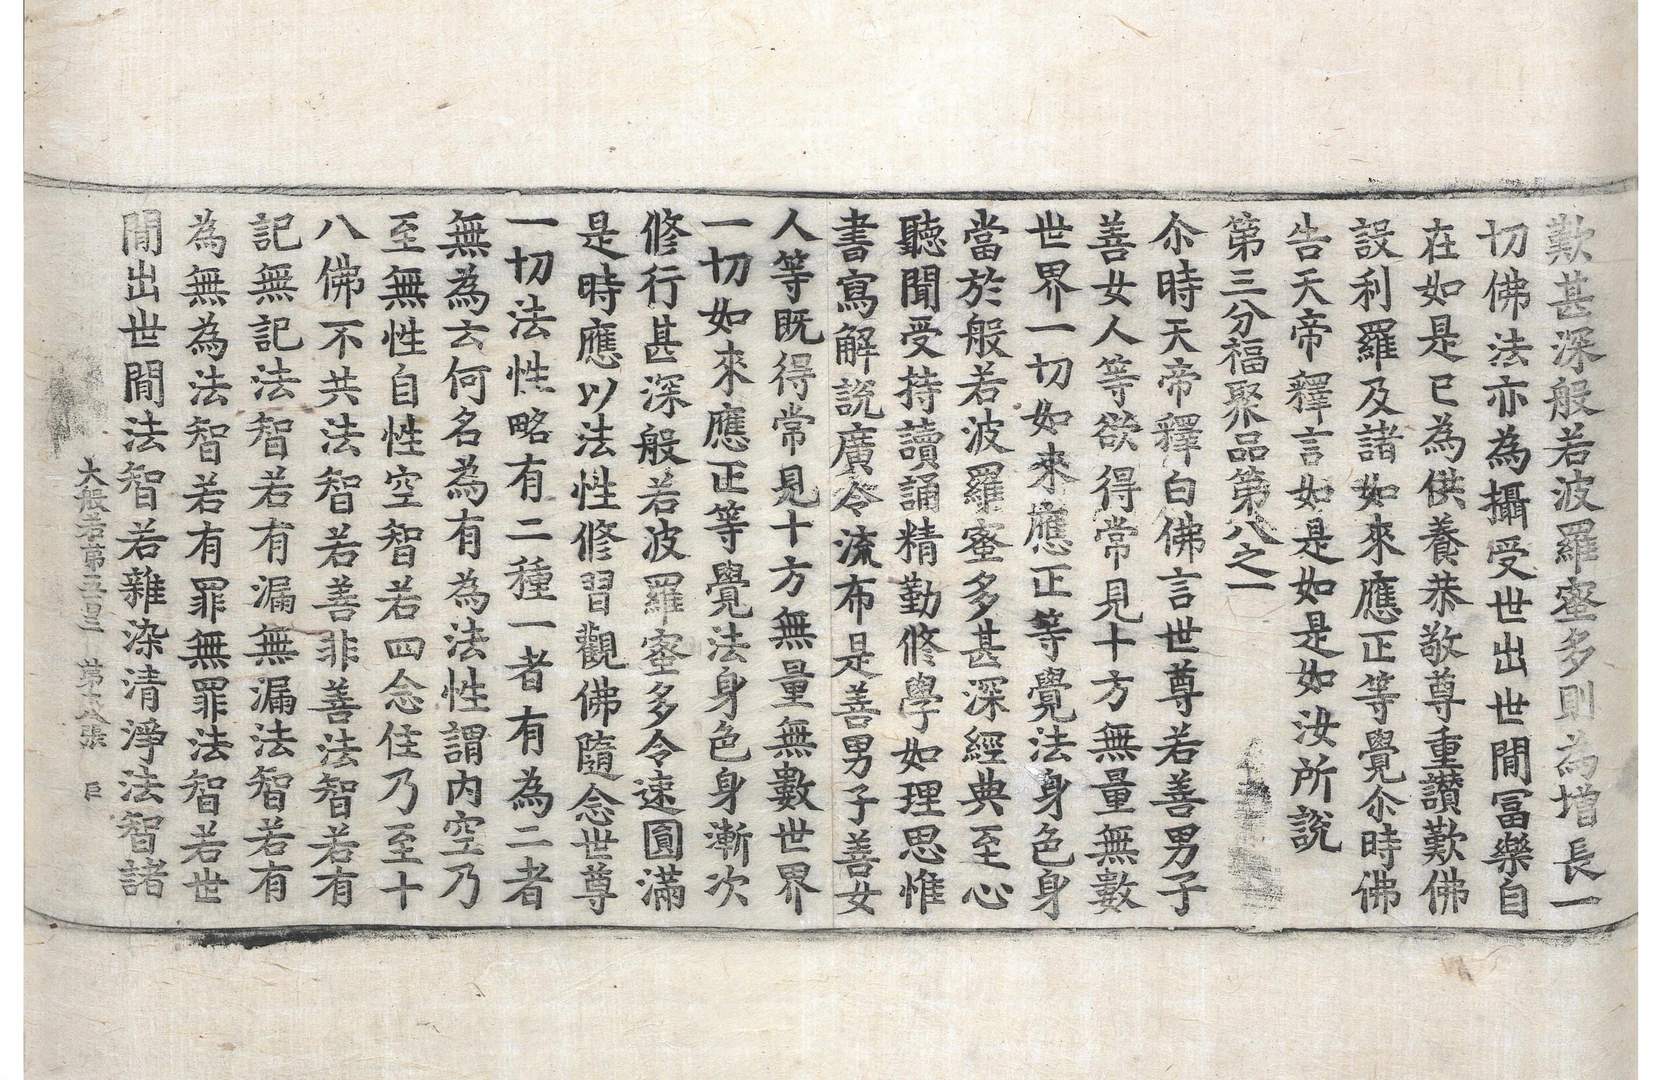 歎甚深般若波羅蜜多則為增長一
切佛法亦為攝受世出世間冨樂自
在如是已為供養恭敬尊重讚歎佛
設利羅及諸如來應正等覺尒時佛
告天帝釋言如是如是如汝所說
第三分福聚品第八之一
尒時天帝釋白佛言世尊若善男子
善女人等欲得常見十方無量無數
世界一切如來應正等覺法身色身
當於般若波羅蜜多甚深經典至心
聽聞受持讀誦精勤修學如理思惟
書寫解說廣令流布是善男子善女
人等既得常見十方無量無數世界
一切如來應正等覺法身色身漸次
修行甚深般若波羅蜜多令速圓滿
是時應以法性修習觀佛隨念世尊
一切法性略有二種一者有為二者
無為云何名為有為法性謂內空乃
至無性自性空智若四念住乃至十
八佛不共法智若善非善法智若有
記無記法智若有漏無漏法智若有
為無為法智若有罪無罪法智若世
間出世間法智若雜染清淨法智諸
大般若第五百三 第六張 巨